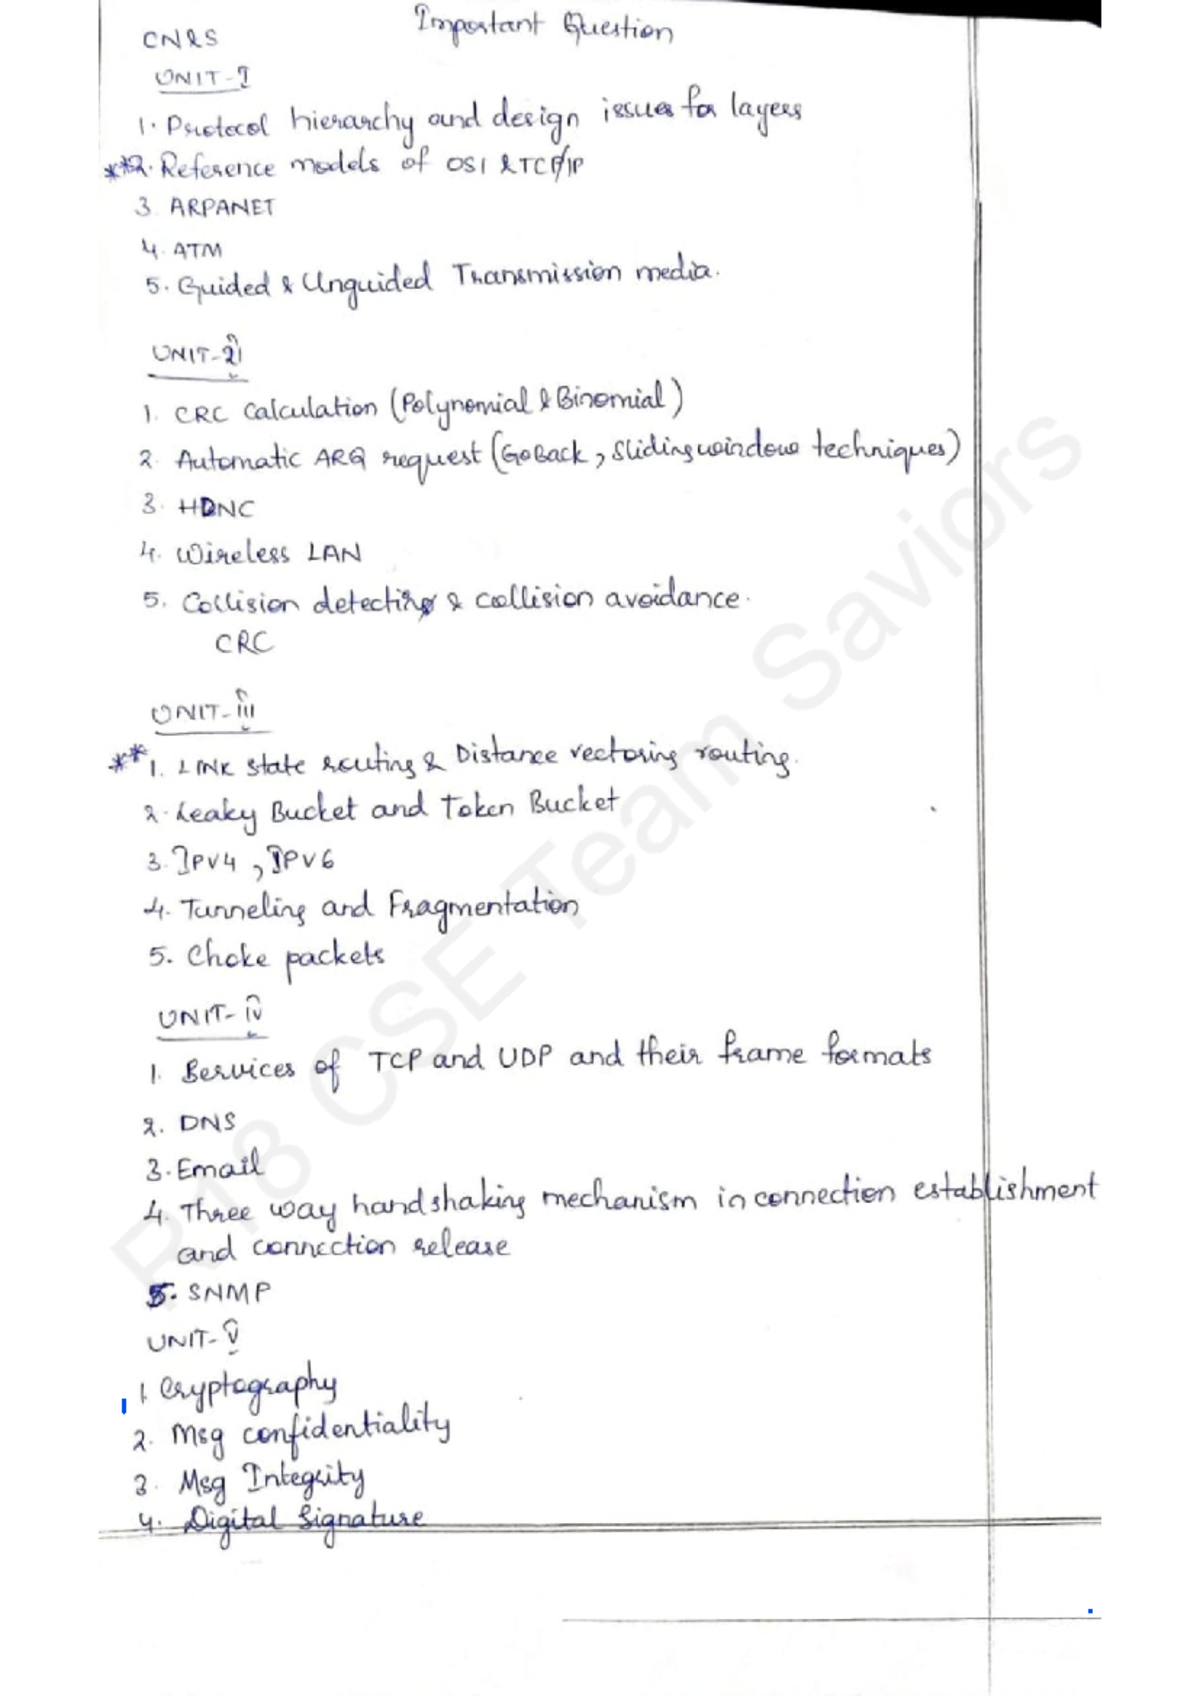 Important Question
CN&S
UNIT-I
1. Protocol hierarchy and design issues for layers
**2. Reference models of OSI & TCP/IP
3. ARPANET
4. ATM
5. Guided & Unguided Transmission media.
UNIT-ii
1. CRC calculation (Polynomial & Binomial)
2. Automatic ARQ request (GoBack, Sliding window techniques)
3. HDNC
4. Wireless LAN
5. Collision detecting & collision avoidance.
CRC
UNIT-iii
** 1. LINK state routing & Distance vectoring routing.
2. Leaky Bucket and Token Bucket
3. IPV4, IPV6
4. Tunneling and Fragmentation
5. Choke packets
UNIT-iv
1. Services of TCP and UDP and their frame formats
2. DNS
3. Email
4. Three way handshaking mechanism in connection establishment
and connection release
5. SNMP
UNIT-V
1. Cryptography
2. Msg confidentiality
3. Msg Integrity
4. Digital Signature
R18 CSE Team Saviors